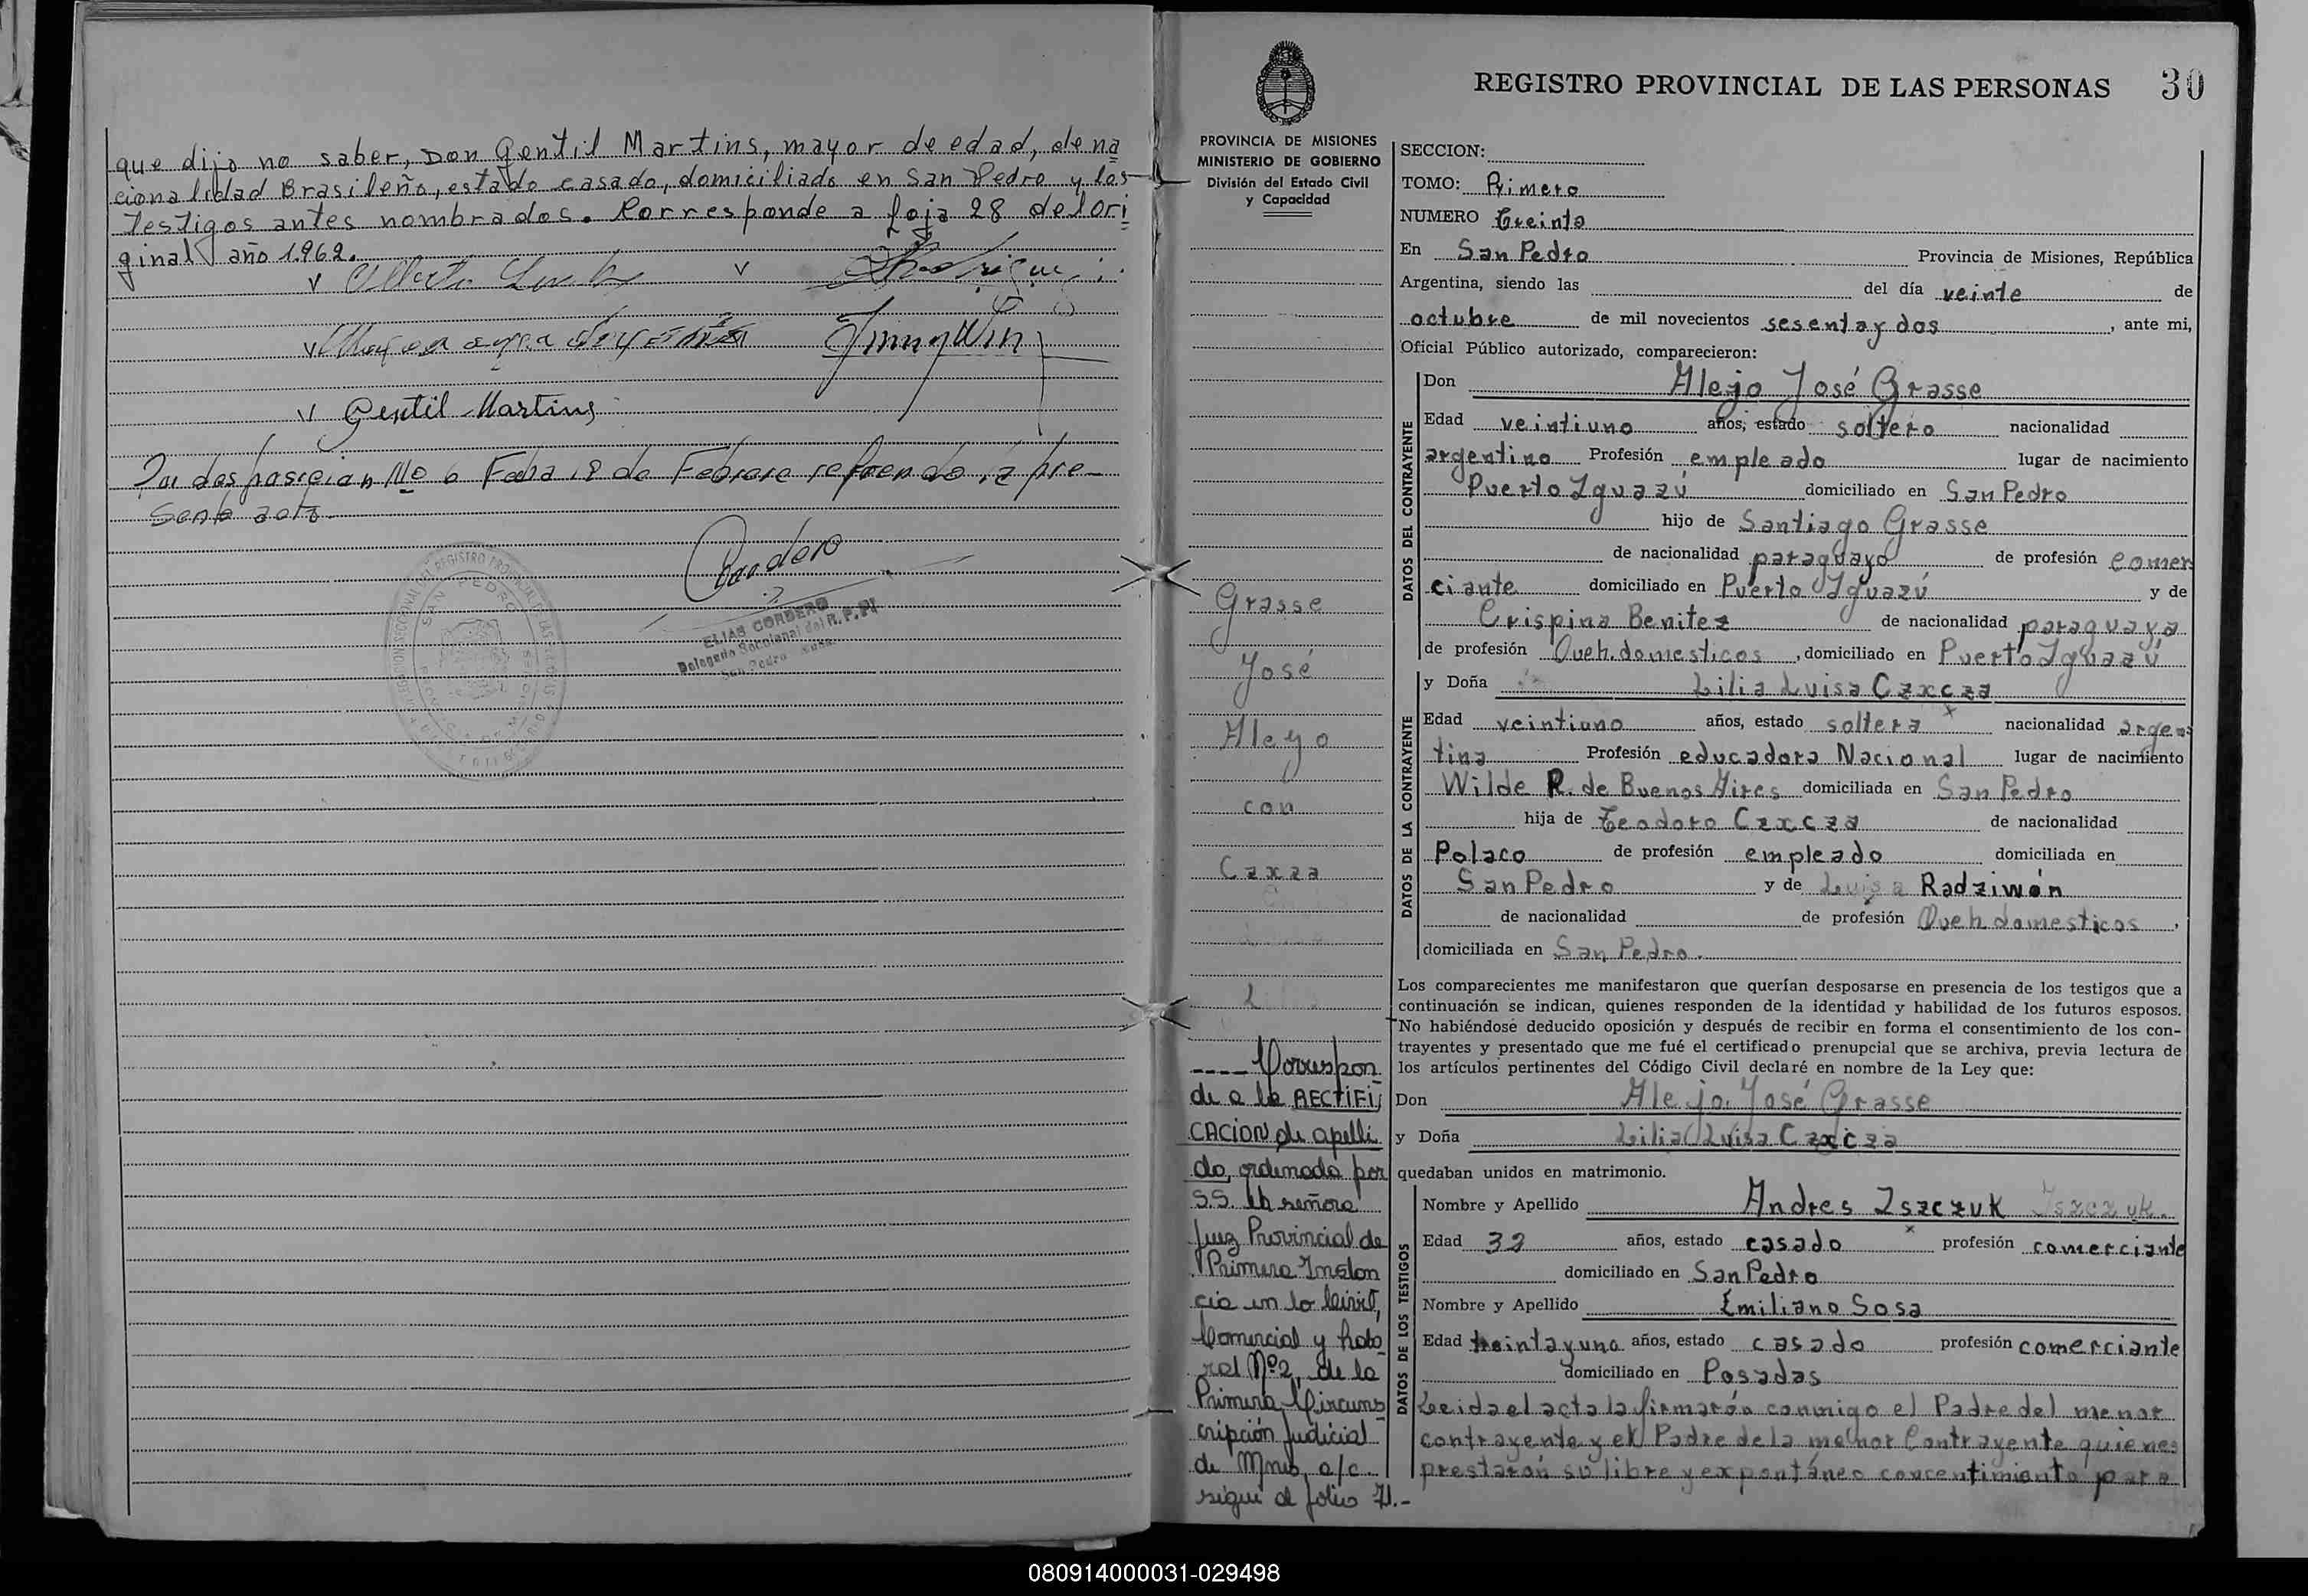 que dijo no saber, Don Gentil Martins, mayor de edad, de na
cionalidad Brasileño, estado casado, domiciliado en San Pedro y los
testigos antes nombrados. Corresponde a foja 28 del ori
ginal año 1962.
Gentil Martins
Por dasposicion Nº 6 Fecha 18 de Febrero refrendo la pre-
sente acta.
Cordero
ELIAS CORDERO
Delegado Seccional del R.P.P.
San Pedro Mnes.
SAN PEDRO
REGISTRO PROVINCIAL DE LAS PERSONAS 30
PROVINCIA DE MISIONES
MINISTERIO DE GOBIERNO
División del Estado Civil
y Capacidad
Grasse
José
Alejo
con
Caxza
L
---- Correspon
de a la RECTIFI
CACION de apelli
do, ordenada por
S.S. la señora
Juez Provincial de
Primera Instan
cia en lo Civil,
Comercial y Labo
ral Nº 2, de la
Primera Circuns
cripción Judicial
de Mnes, a/c.
sigue al folio 71.-
SECCION:
TOMO: Primero
NUMERO Treinta
En San Pedro Provincia de Misiones, República
Argentina, siendo las del día veinte de
octubre de mil novecientos sesenta y dos, ante mi,
Oficial Público autorizado, comparecieron:
DATOS DEL CONTRAYENTE
Don Alejo José Grasse
Edad veintiuno años, estado soltero nacionalidad
argentino Profesión empleado lugar de nacimiento
Puerto Iguazú domiciliado en San Pedro
hijo de Santiago Grasse
de nacionalidad paraguayo de profesión comer
ciante domiciliado en Puerto Iguazú y de
Crispina Benitez de nacionalidad paraguaya
de profesión Queh. domesticos, domiciliado en Puerto Iguazú
DATOS DE LA CONTRAYENTE
y Doña Lilia Luisa Czxcza
Edad veintiuno años, estado soltera nacionalidad argen
tina Profesión educadora Nacional lugar de nacimiento
Wilde R. de Buenos Aires domiciliada en San Pedro
hija de Teodoro Czxcza de nacionalidad
Polaco de profesión empleado domiciliada en
San Pedro y de Luisa Radziwón
de nacionalidad de profesión Queh domesticos,
domiciliada en San Pedro.
Los comparecientes me manifestaron que querían desposarse en presencia de los testigos que a
continuación se indican, quienes responden de la identidad y habilidad de los futuros esposos.
No habiéndose deducido oposición y después de recibir en forma el consentimiento de los con-
trayentes y presentado que me fué el certificado prenupcial que se archiva, previa lectura de
los artículos pertinentes del Código Civil declaré en nombre de la Ley que:
Don Alejo José Grasse
y Doña Lilia Luisa Czxcza
quedaban unidos en matrimonio.
DATOS DE LOS TESTIGOS
Nombre y Apellido Andres Iszczuk Iszczuk.
Edad 32 años, estado casado profesión comerciante
domiciliado en San Pedro
Nombre y Apellido Emiliano Sosa
Edad treinta y uno años, estado casado profesión comerciante
domiciliado en Posadas
Leida el acta la firmarón conmigo el Padre del menor
contrayente y el Padre de la menor Contrayente quienes
prestarón su libre y expontáneo concentimiento para
080914000031-029498